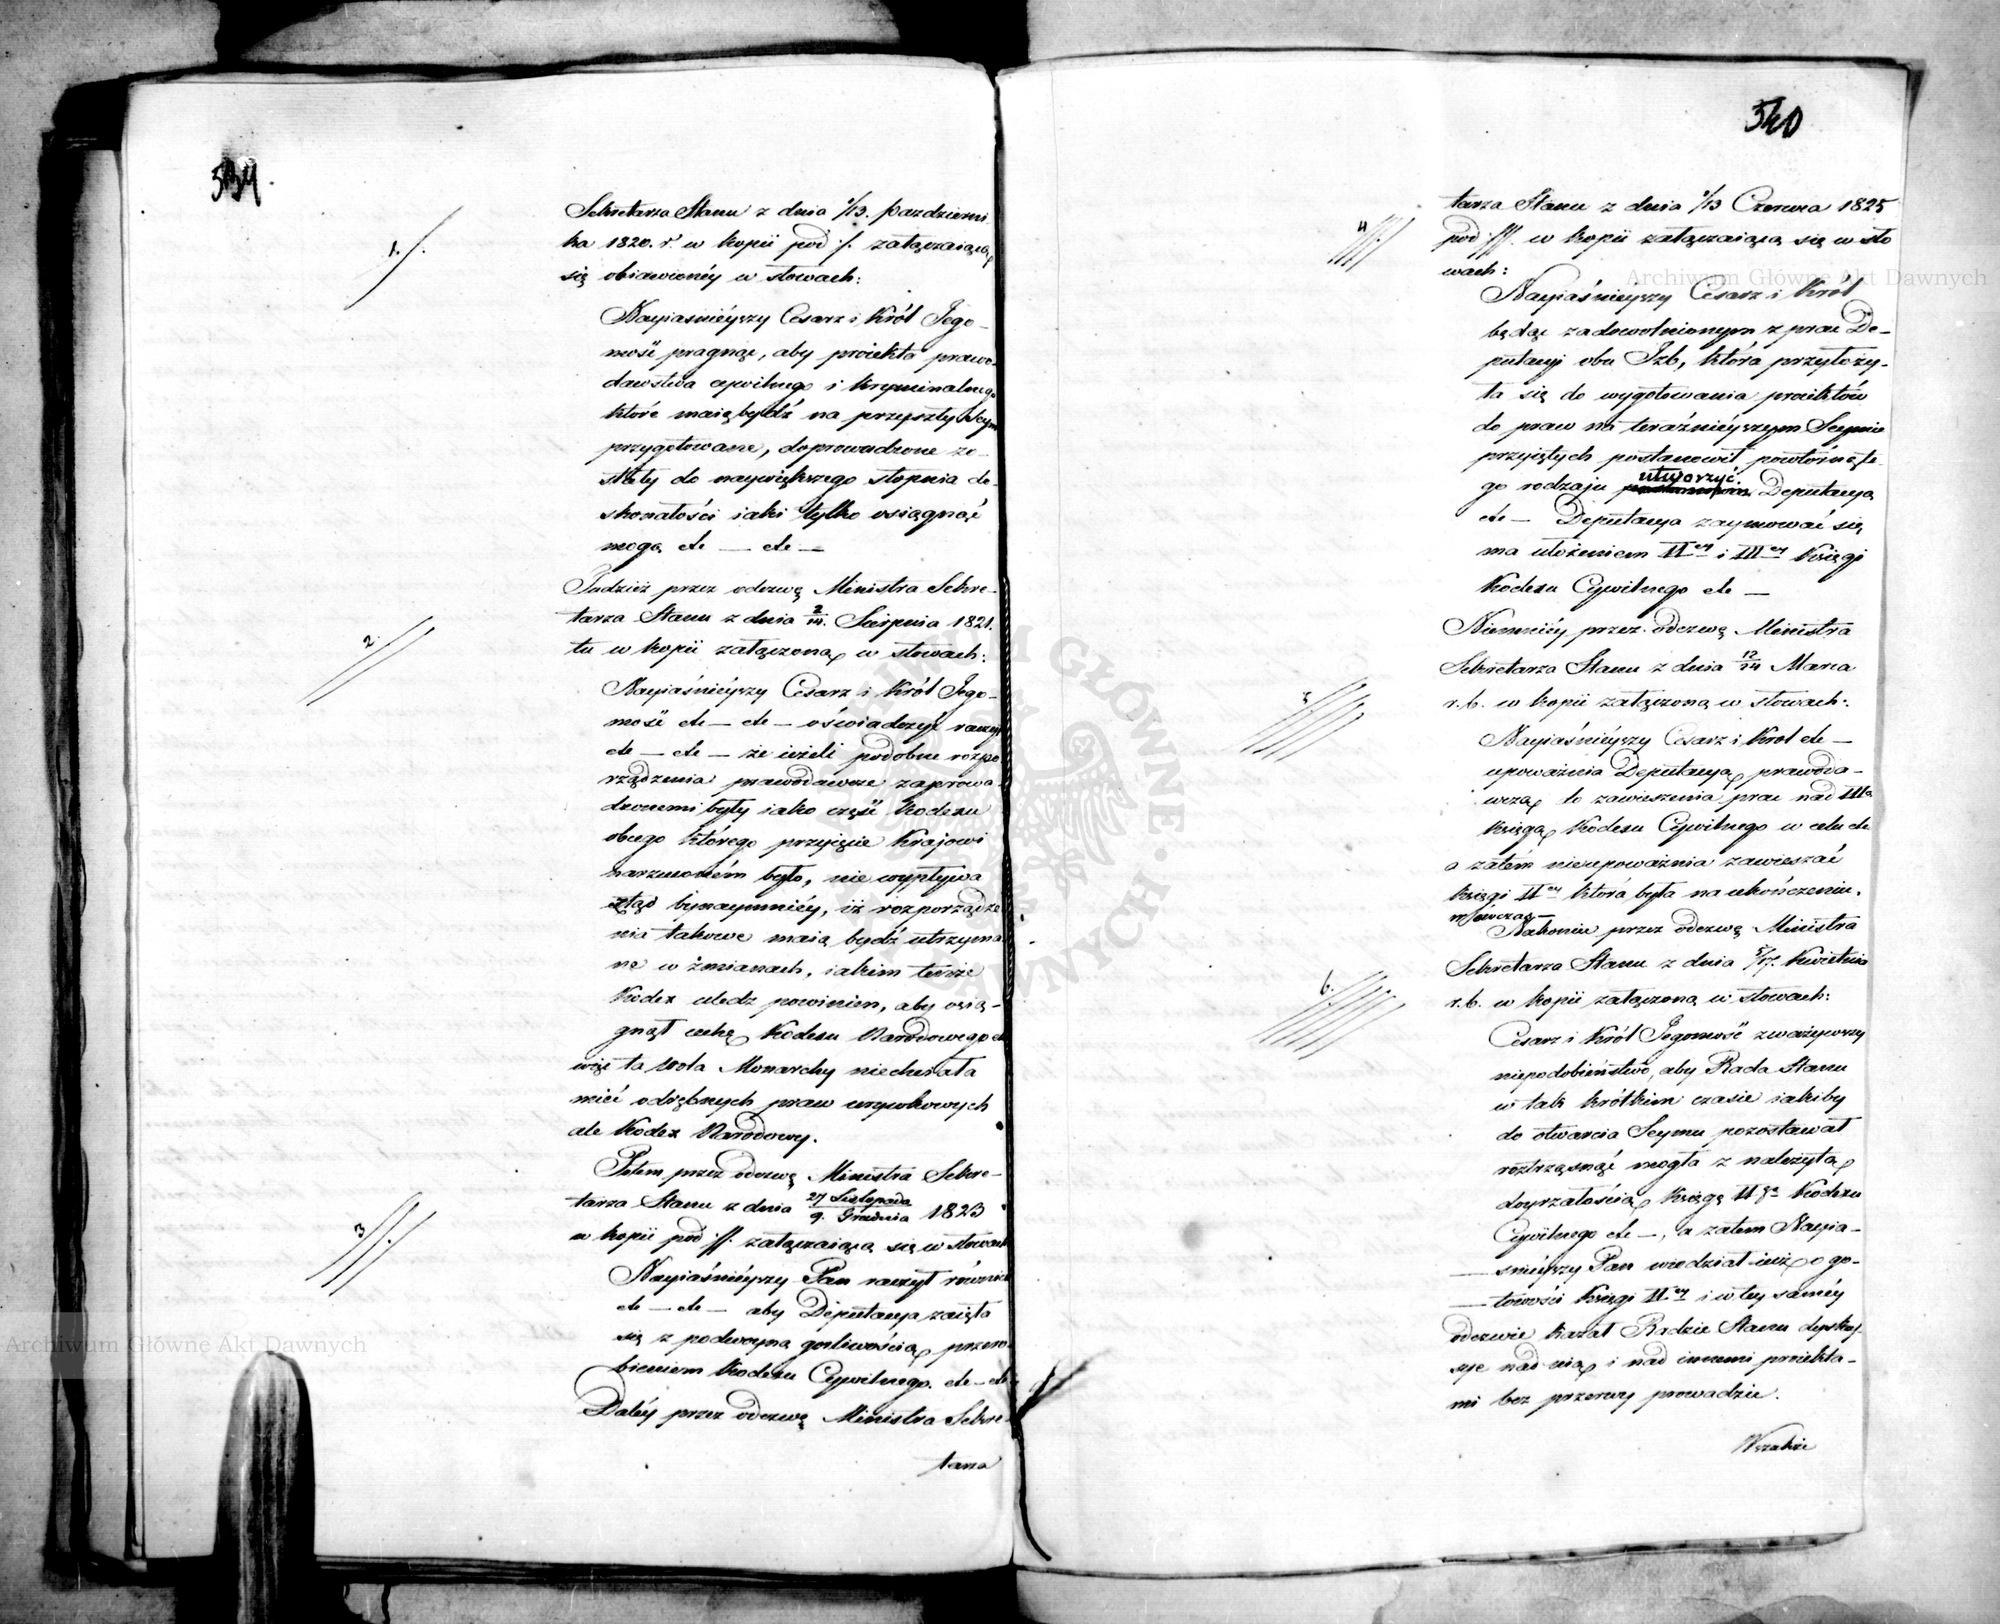 539.
1. /.
Sekretarza Stanu z dnia 1/13. Pazdzierni
ka 1820. r. w kopii pod /. załączaiącą
się obiawionéy w słowach:
Nayiaśnieyszy Cesarz i Król Jego-
mość pragnąc, aby proiekta prawo-
dawstwa cywilnego i kryminalnego
które maią bydź na przyszły Seym
przygotowane, doprowadzone zo-
stały do naywiększego stopnia do-
skonałości iaki tylko osiągnąć
mogą etc — etc —
Tudzież przez odezwę Ministra Sekre-
2.
tarza Stanu z dnia 2/14. Sierpnia 1821.
tu w kopii załączoną w słowach:
Nayiaśnieyszy Cesarz i Król Jego-
mość etc — etc — oświadczyć raczył
etc — etc — że ieżeli podobne rozpo
rządzenia prawodawcze zaprowa-
dzonemi były iako część kodexu
obcego którego przyięcie Kraiowi
narzuconém było, nie wypływa
ztąd bynaymniéy, iż rozporządze
nia takowe maią bydź utrzyma
ne w zmianach, iakim tenże
Kodex uledz powinien, aby osią-
gnął cechę Kodexu Narodowego etc
więc ta wola Monarchy niechciała
mieć odrębnych praw urywkowych
ale Kodex Narodowy.
Potem przez odezwę Ministra Sekre-
3
tarza Stanu z dnia 27 Listopada / 9. Grudnia 1823
w kopii pod //. załączaiącą się w słowach
Nayiaśnieyszy Pan raczył również
etc — etc — aby Deputacya zaięła
się z podwoyną gorliwością przero-
bieniem Kodexu Cywilnego. etc — etc
Daléy przez odezwę Ministra Sekre-
tarza
540
4
tarza Stanu z dnia 1/13 Czerwca 1825
pod ///. w kopii załączaiącą się w sło
wach:
Nayiaśnieyszy Cesarz i Król
będąc zadowolnionym z prac De-
putacyi obu Izb, która przyłoży-
ła się do wygotowania proiektów
do praw na teraźnieyszym Seymie
przyiętych postanowił powtórnie te-
utworzyć
go rodzaju Deputacyą
etc — Deputacya zaymować się
ma ułożeniem II ey i III ey Księgi
Kodexu Cywilnego etc —
Niemniéy przez odezwę Ministra
Sekretarza Stanu z dnia 12/24 Marca
5
r. b. w kopii załączoną w słowach:
Nayiaśnieyszy Cesarz i Król etc —
upoważnia Deputacyą prawoda-
wczą do zawieszenia prac nad III ą
Księgą Kodexu Cywilnego w celu etc
a zatém nieupoważnia zawieszać
Księgi II ey która była na ukończeniu.
wówczas —
Nakoniec przez odezwę Ministra
Sekretarza Stanu z dnia 5/17. Kwietnia
6.
r. b. w kopii załączoną w słowach:
Cesarz i Król Jegomość zważywszy
niepodobieństwo, aby Rada Stanu
w tak krótkim czasie iakiby
do otwarcia Seymu pozostawał
roztrząsnąć mogła z należytą
doyrzałością Księgę II gą Kodexu
Cywilnego etc —, a zatem Nayia-
śnieyszy Pan wiedział iuż o go-
towości Księgi II ey i w tey saméy
odezwie kazał Radzie Stanu dysku-
sye nad nią i nad innemi proiekta-
mi bez przerwy prowadzić.
Wszakże
Archiwum Główne Akt Dawnych
Archiwum Główne Akt Dawnych